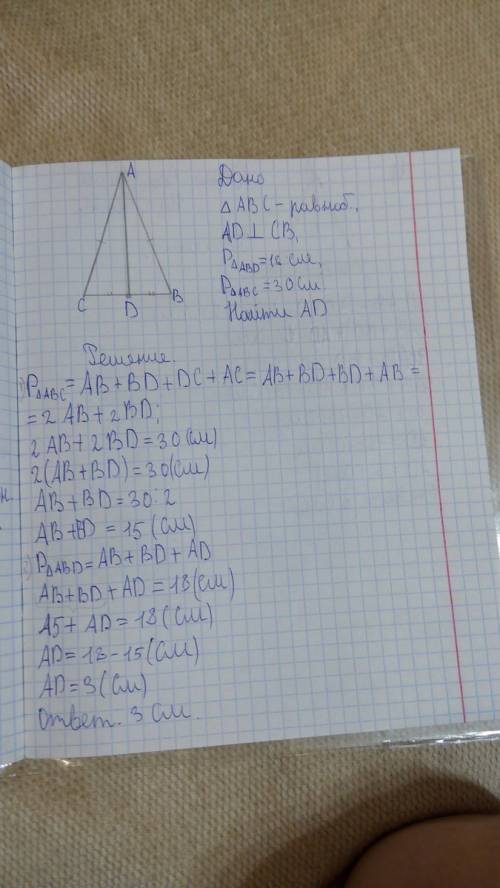 A
C
D
B
Дано
△ABC - равноб.,
AD ⊥ CB,
P△ABD = 18 см,
P△ABC = 30 см
Найти AD
Решение.
1) P△ABC = AB + BD + DC + AC = AB + BD + BD + AB =
= 2 AB + 2 BD;
2 AB + 2 BD = 30 (см)
2 (AB + BD) = 30 (см)
AB + BD = 30 : 2
AB + BD = 15 (см)
2) P△ABD = AB + BD + AD
AB + BD + AD = 18 (см)
15 + AD = 18 (см)
AD = 18 - 15 (см)
AD = 3 (см)
Ответ. 3 см.